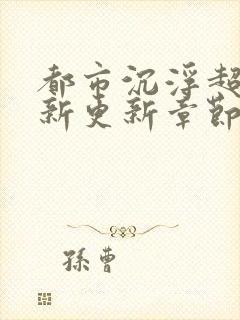 都市沉浮超
新更新章節
孫曹